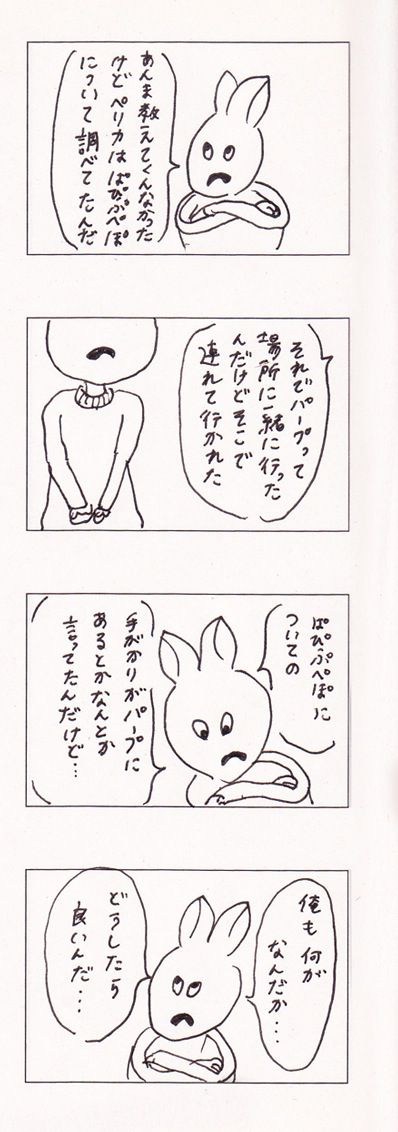 あんま教えてくんなかった
けどペリカはぱぴぷぺぽ
について調べてたんだ
それでパープって
場所に一緒に行った
んだけどそこで
連れて行かれた
ぱぴぷぺぽに
ついての
手がかりがパープに
あるとかなんとか
言ってたんだけど…
俺も何が
なんだか…
どうしたら
良いんだ…